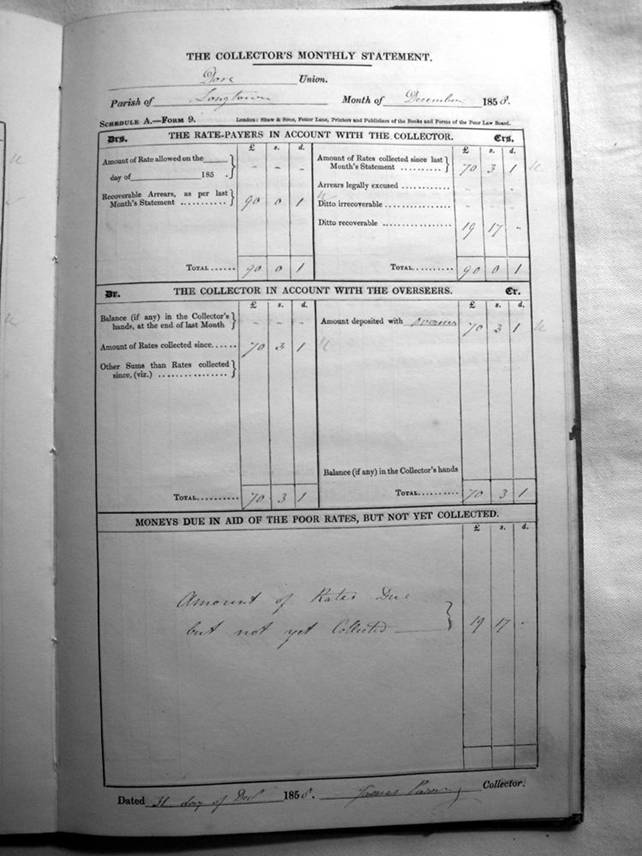 THE COLLECTOR'S MONTHLY STATEMENT.
Dore Union.
Parish of Longtown Month of December 1858.
SCHEDULE A.—FORM 9. London: Shaw & Sons, Fetter Lane, Printers and Publishers of the Books and Forms of the Poor Law Board.
Drs. THE RATE-PAYERS IN ACCOUNT WITH THE COLLECTOR. Crs.
£ s. d. £ s. d.
Amount of Rate allowed on the
day of 185 . } - - -
Amount of Rates collected since last
Month's Statement } 70 3 1
Arrears legally excused - - -
Recoverable Arrears, as per last
Month's Statement } 90 0 1
Ditto irrecoverable - - -
Ditto recoverable 19 17 -
TOTAL 90 0 1 TOTAL 90 0 1
Dr. THE COLLECTOR IN ACCOUNT WITH THE OVERSEERS. Cr.
£ s. d. £ s. d.
Balance (if any) in the Collector's
hands, at the end of last Month } - - -
Amount deposited with Overseers 70 3 1
Amount of Rates collected since 70 3 1
Other Sums than Rates collected
since, (viz.) }
Balance (if any) in the Collector's hands
TOTAL 70 3 1 TOTAL 70 3 1
MONEYS DUE IN AID OF THE POOR RATES, BUT NOT YET COLLECTED.
£ s. d.
Amount of Rates Due
but not yet Collected } 19 17 -
Dated 31 day of Decr 1858. James Collector.